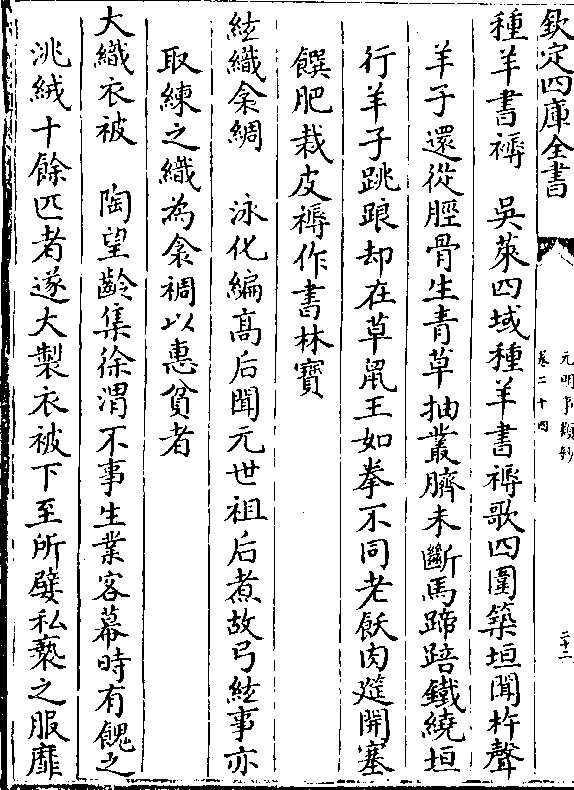 欽定四庫全書
元明事類鈔
卷二十四
二十二
種羊書褥　吳萊四域種羊書褥歌四圍築垣聞杵聲
羊子還從脛骨生青草抽叢臍未斷馬蹄踣鐵繞垣
行羊子跳踉却在草䑕王如拳不同老飫肉筵開塞
饌肥栽皮褥作書林寶
紘織衾綢　泳化編髙后聞元世祖后煮故弓紘事亦
取練之織為衾裯以惠貧者
大織衣被　陶望齡集徐渭不事生業客幕時有餽之
洮絨十餘匹者遂大製衣被下至所嬖私褻之服靡